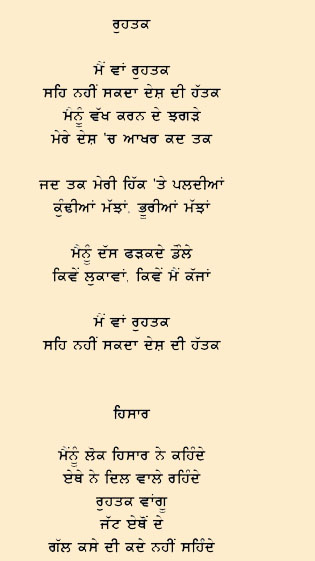 ਰੁਹਤਕ
ਮੈਂ ਵਾਂ ਰੁਹਤਕ
ਸਹਿ ਨਹੀਂ ਸਕਦਾ ਦੇਸ਼ ਦੀ ਹੱਤਕ
ਮੈਨੂੰ ਵੱਖ ਕਰਨ ਦੇ ਝਗੜੇ
ਮੇਰੇ ਦੇਸ਼ 'ਚ ਆਖਰ ਕਦ ਤਕ
ਜਦ ਤਕ ਮੇਰੀ ਹਿੱਕ 'ਤੇ ਪਲਦੀਆਂ
ਕੁੰਢੀਆਂ ਮੱਝਾਂ, ਭੂਰੀਆਂ ਮੱਝਾਂ
ਮੈਨੂੰ ਦੱਸ ਫੜਕਦੇ ਡੌਲੇ
ਕਿਵੇਂ ਲੁਕਾਵਾਂ, ਕਿਵੇਂ ਮੈਂ ਕੱਜਾਂ
ਮੈਂ ਵਾਂ ਰੁਹਤਕ
ਸਹਿ ਨਹੀਂ ਸਕਦਾ ਦੇਸ਼ ਦੀ ਹੱਤਕ
ਹਿਸਾਰ
ਮੈਂਨੂੰ ਲੋਕ ਹਿਸਾਰ ਨੇ ਕਹਿੰਦੇ
ਏਥੇ ਨੇ ਦਿਲ ਵਾਲੇ ਰਹਿੰਦੇ
ਰੁਹਤਕ ਵਾਂਗੂ
ਜੱਟ ਏਥੋਂ ਦੇ
ਗੱਲ ਕਸੇ ਦੀ ਕਦੇ ਨਹੀਂ ਸਹਿੰਦੇ